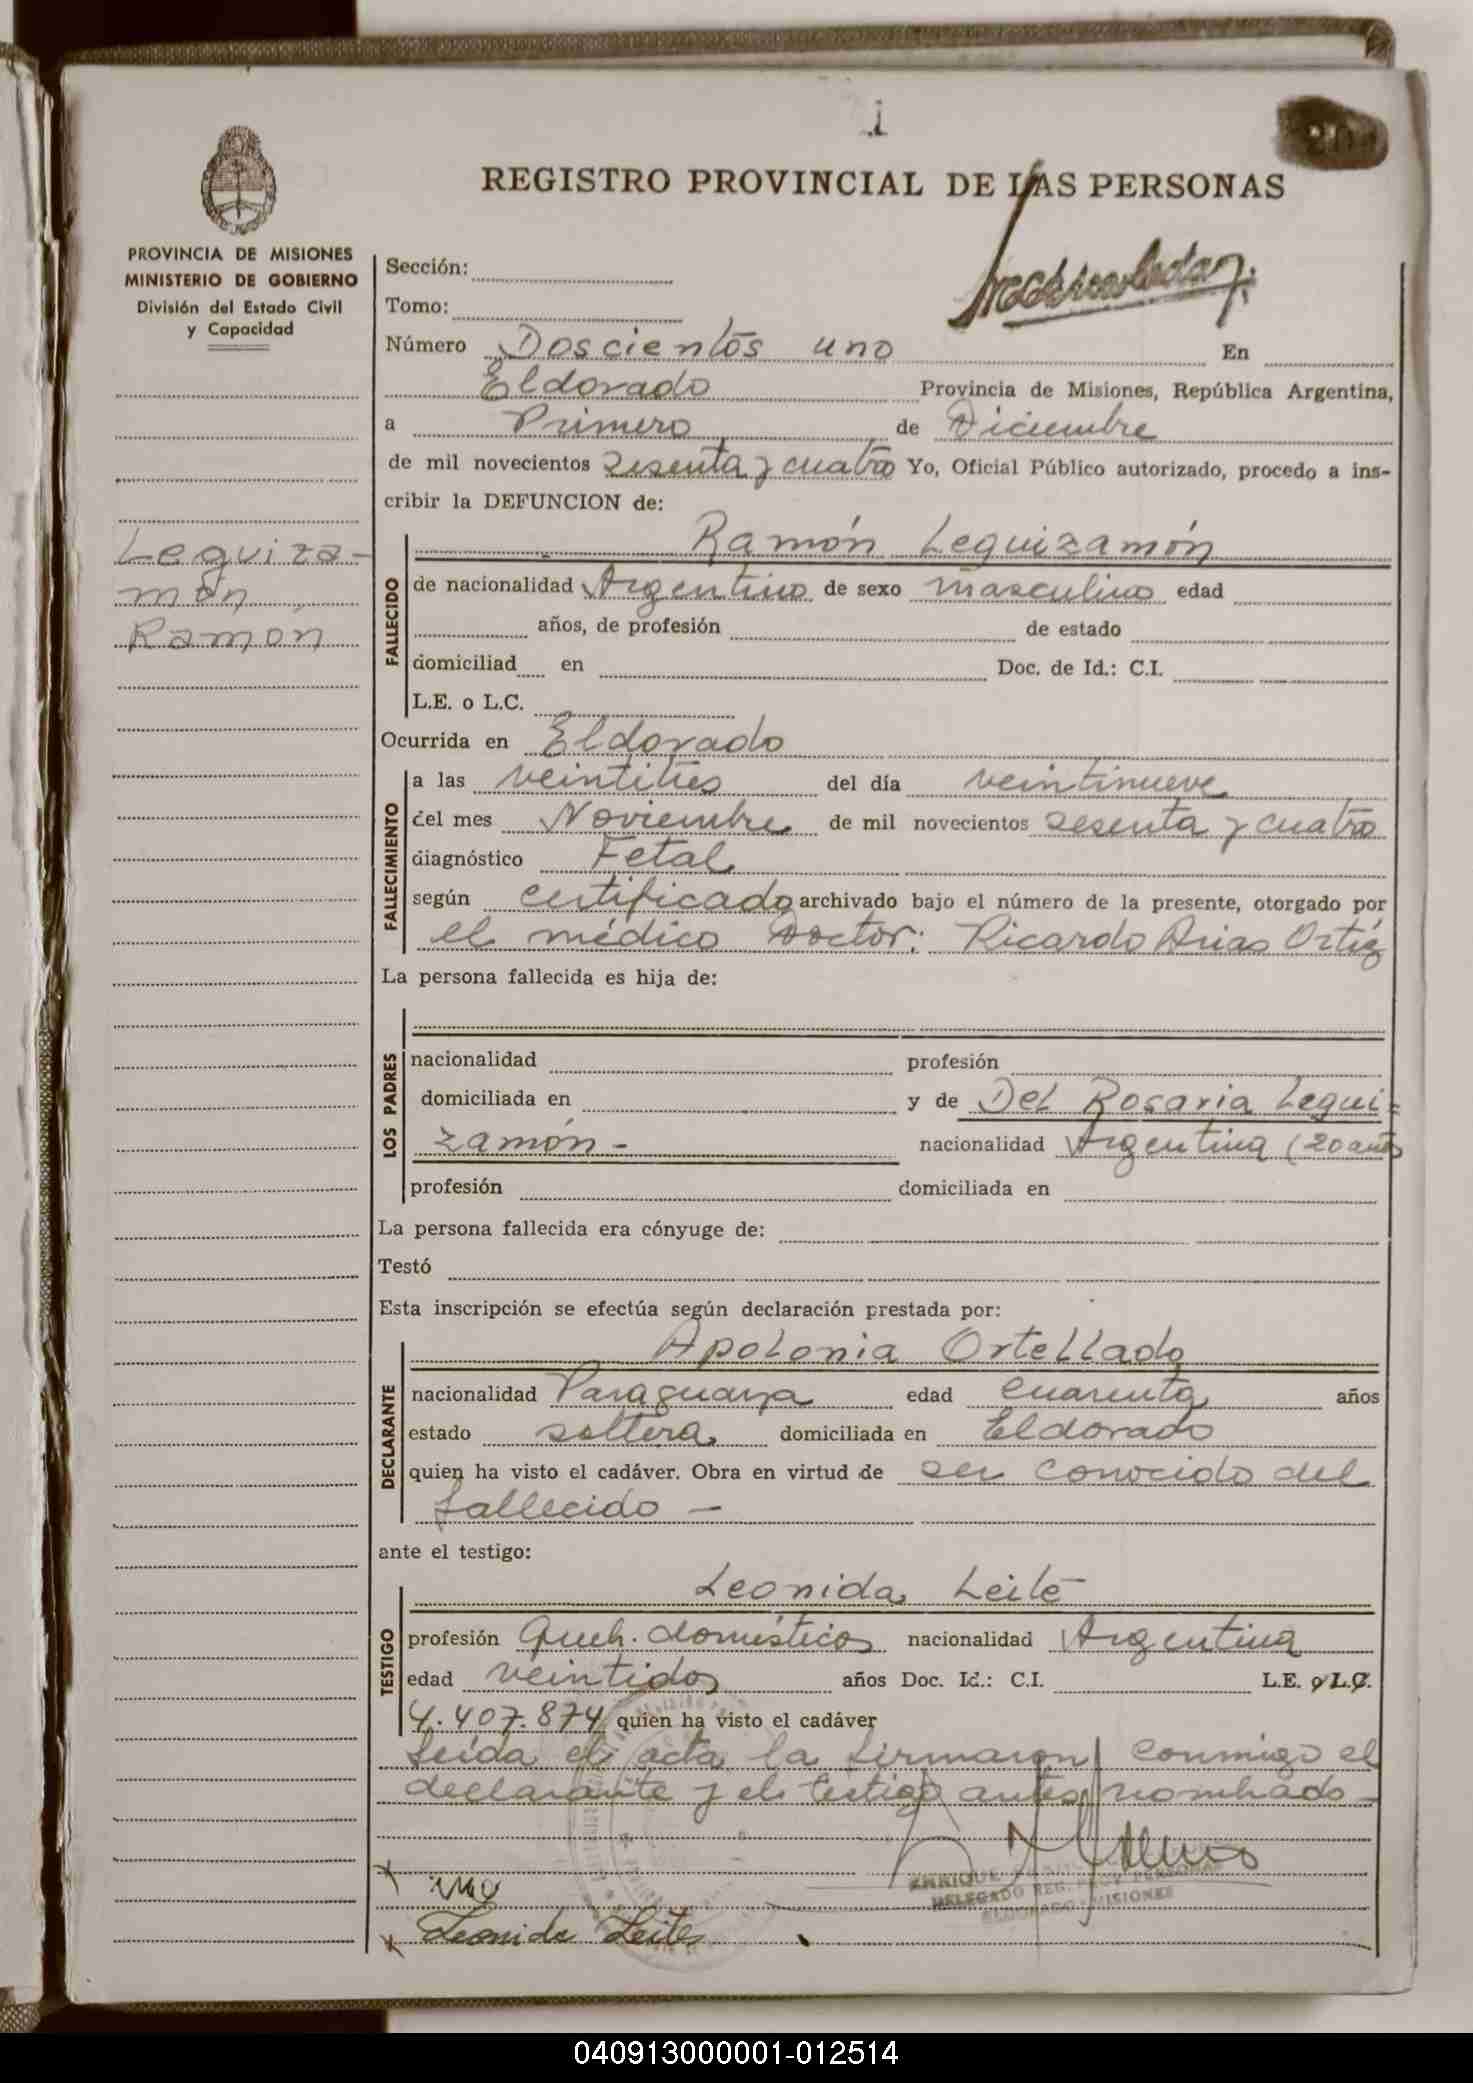 i
201
REGISTRO PROVINCIAL DE LAS PERSONAS
PROVINCIA DE MISIONES
MINISTERIO DE GOBIERNO
División del Estado Civil
y Capacidad
Leguiza-
món
Ramón
Sección:
Tomo:
Número Doscientos uno En
Eldorado Provincia de Misiones, República Argentina,
a Primero de Diciembre
de mil novecientos sesenta y cuatro Yo, Oficial Público autorizado, procedo a ins-
cribir la DEFUNCION de:
Ramón Leguizamón
FALLECIDO
de nacionalidad Argentino de sexo masculino edad
años, de profesión de estado
domiciliad en Doc. de Id.: C.I.
L.E. o L.C.
Ocurrida en Eldorado
FALLECIMIENTO
a las veintitres del día veintinueve
del mes Noviembre de mil novecientos sesenta y cuatro
diagnóstico Fetal
según certificado archivado bajo el número de la presente, otorgado por
el médico Doctor: Ricardo Arias Ortíz
La persona fallecida es hija de:
LOS PADRES
nacionalidad profesión
domiciliada en y de Del Rosaria Legui=
zamón - nacionalidad Argentina (20 años
profesión domiciliada en
La persona fallecida era cónyuge de:
Testó
Esta inscripción se efectúa según declaración prestada por:
Apolonia Ortellado
DECLARANTE
nacionalidad Paraguaya edad cuarenta años
estado soltera domiciliada en Eldorado
quien ha visto el cadáver. Obra en virtud de ser conocido del
fallecido -
ante el testigo:
Leonida Leite
TESTIGO
profesión Queh. domésticos nacionalidad Argentina
edad veintidos años Doc. Id.: C.I. L.E. o L.C.
4.407.874 quien ha visto el cadáver
Leída el acta la firmaron conmigo el
declarante y el testigo antes nombrado -
ENRIQUE
DELEGADO REG. PROV. PERSONAS
ELDORADO MISIONES
x
x Leonida Leite
040913000001-012514